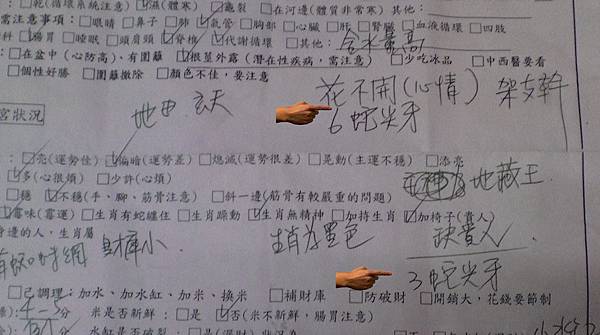 ：□乾(循環系統注意) ☑濕(體寒) □龜裂 □在河邊(體質非常寒) 其他：
需注意事項：□眼睛 □鼻子 □肺 ☑氣管 □胸部 □心臟 □肝 □腎臟 □血液循環 □四肢
科 □腸胃 □睡眠 □頭肩頸 ☑脊椎 ☑代謝循環 □其他：含水量高
：□在盆中(心防高)、有圍籬 ☑根莖外露(潛在性疾病，需注意) □少吃冰品 □中西醫要看
□個性好勝 □圍籬撤除 □顏色不佳，要注意
花不開(心情) 架支幹
地田 玄天
6 蛇尖牙
宮狀況
：□亮(運勢佳) ☑偏暗(運勢差) □熄滅(運勢很差) □晃動(主運不穩) □添亮
：☑多(心很煩) □少許(心煩)
地藏王
□穩 ☑不穩(手、腳、筋骨注意) □斜一邊(筋骨有較嚴重的問題)
☑霉味(霉運) □生肖有蛇纏住 □生肖躁動 ☑生肖無精神 □加持生肖 ☑加椅子(貴人)
身邊的人，生肖屬
財庫小 生肖為黑色 缺貴人
3 蛇尖牙
□已調理：加水、加水缸、加米、換米 □補財庫 □防破財 □開銷大，花錢要節制
米是否新鮮：□是 ☑否(米不新鮮，腸胃注意)
水缸是否破裂：□是